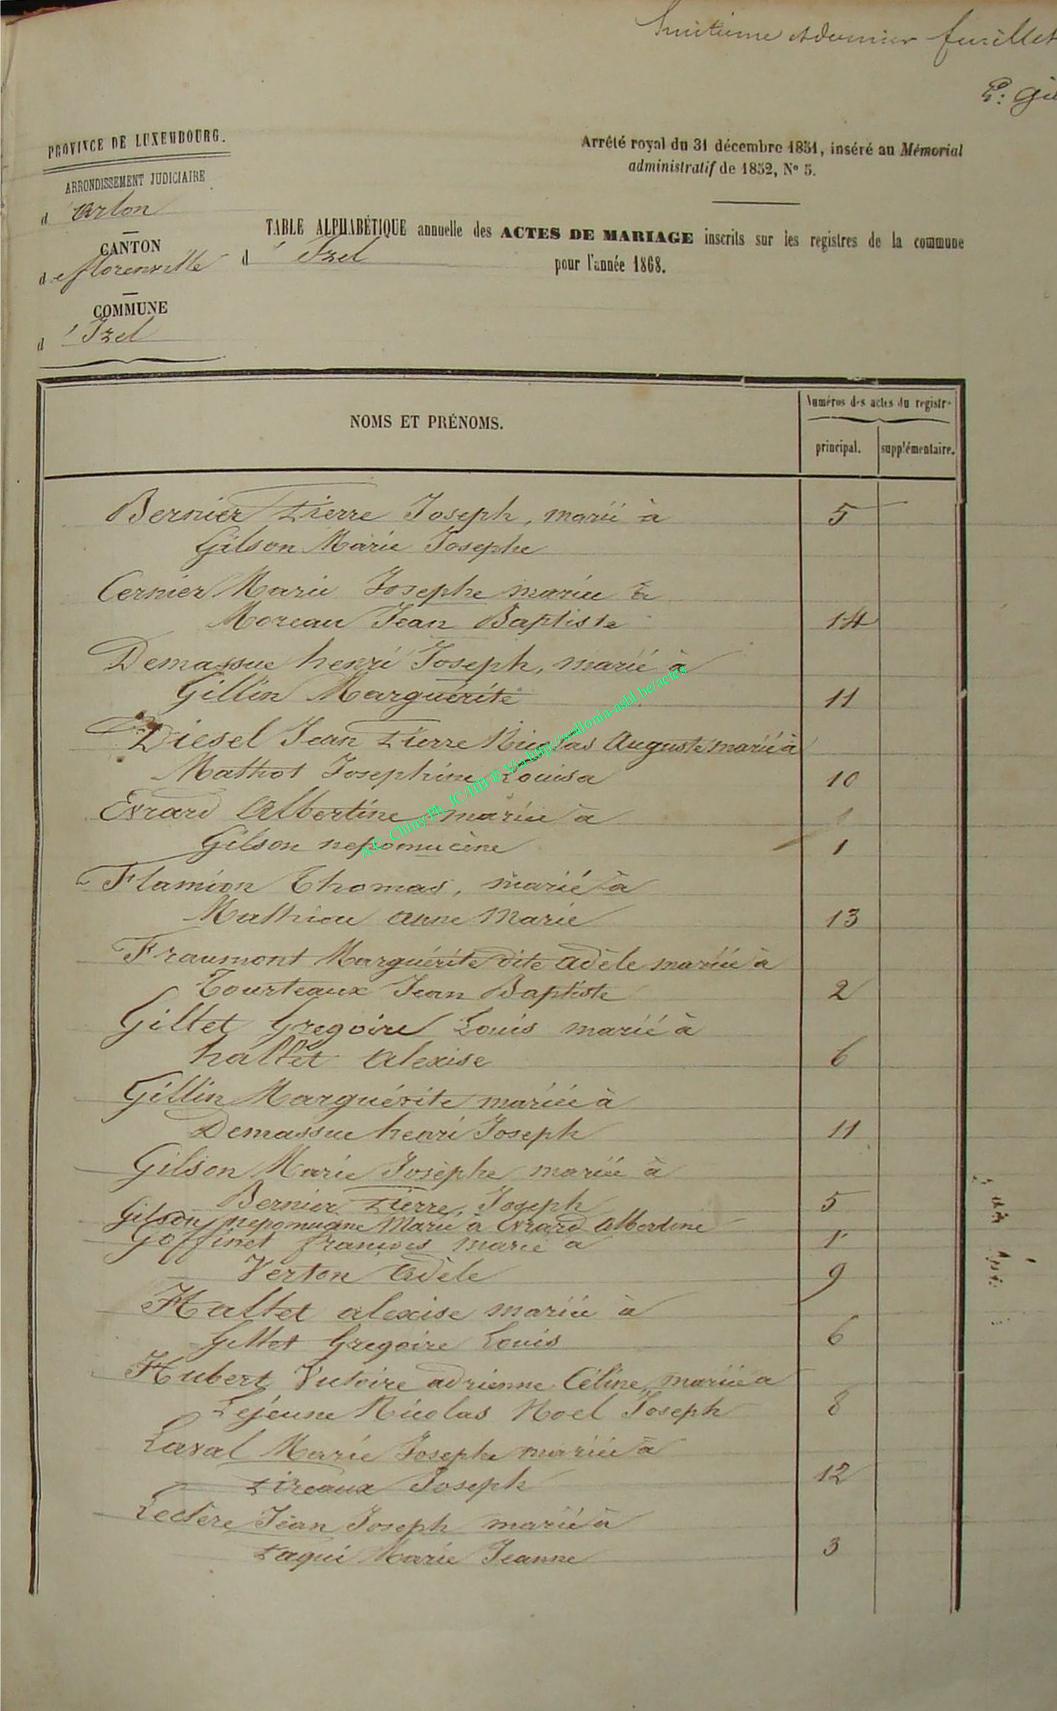 huitième et dernier feuillet
PROVINCE DE LUXEMBOURG.
ARRONDISSEMENT JUDICIAIRE
d'Arlon
CANTON
de florenville
COMMUNE
d'Izel
Arrêté royal du 31 décembre 1851, inséré au Mémorial
administratif de 1852, No 5.
TABLE ALPHABÉTIQUE annuelle des ACTES DE MARIAGE inscrits sur les registres de la commune
d'Izel pour l'année 1868.
NOMS ET PRÉNOMS.
Numéros des actes du registre
principal. supplémentaire.
Bernier Pierre Joseph, marié à 5
Gilson Marie Josephe
Cernier Marie Josephe mariée à
Moreau Jean Baptiste 14
Demassue henri Joseph, marié à
Gillin Marguérite 11
Diesel Jean Pierre Nicolas Auguste marié à
Mathot Josephine Louisa 10
Evrard Albertine mariée à
Gilson nepomucène 1
Flamion Thomas, marié à
Mathieu anne Marie 13
Fraumont Marguérite dite adèle mariée à
Tourteaux Jean Baptiste 2
Giltet Gregoire Louis marié à
haltet alexise 6
Gillin Marguérite mariée à
Demassue henri Joseph 11
Gilson Marie Josèphe mariée à
Bernier Pierre, Joseph 5
Gilson nepomucène Marié à Evrard Albertine 1
Goffinet françois marié à
Verton Adèle 9
Haltet alexise mariée à
Giltet Gregoire Louis 6
Hubert Victoire adrienne Céline, mariée à
Lejeune Nicolas Noel Joseph 8
Laval Marie Josephe mariée à
Pireaux Joseph 12
Leclère Jean Joseph marié à
Paqui Marie Jeanne 3